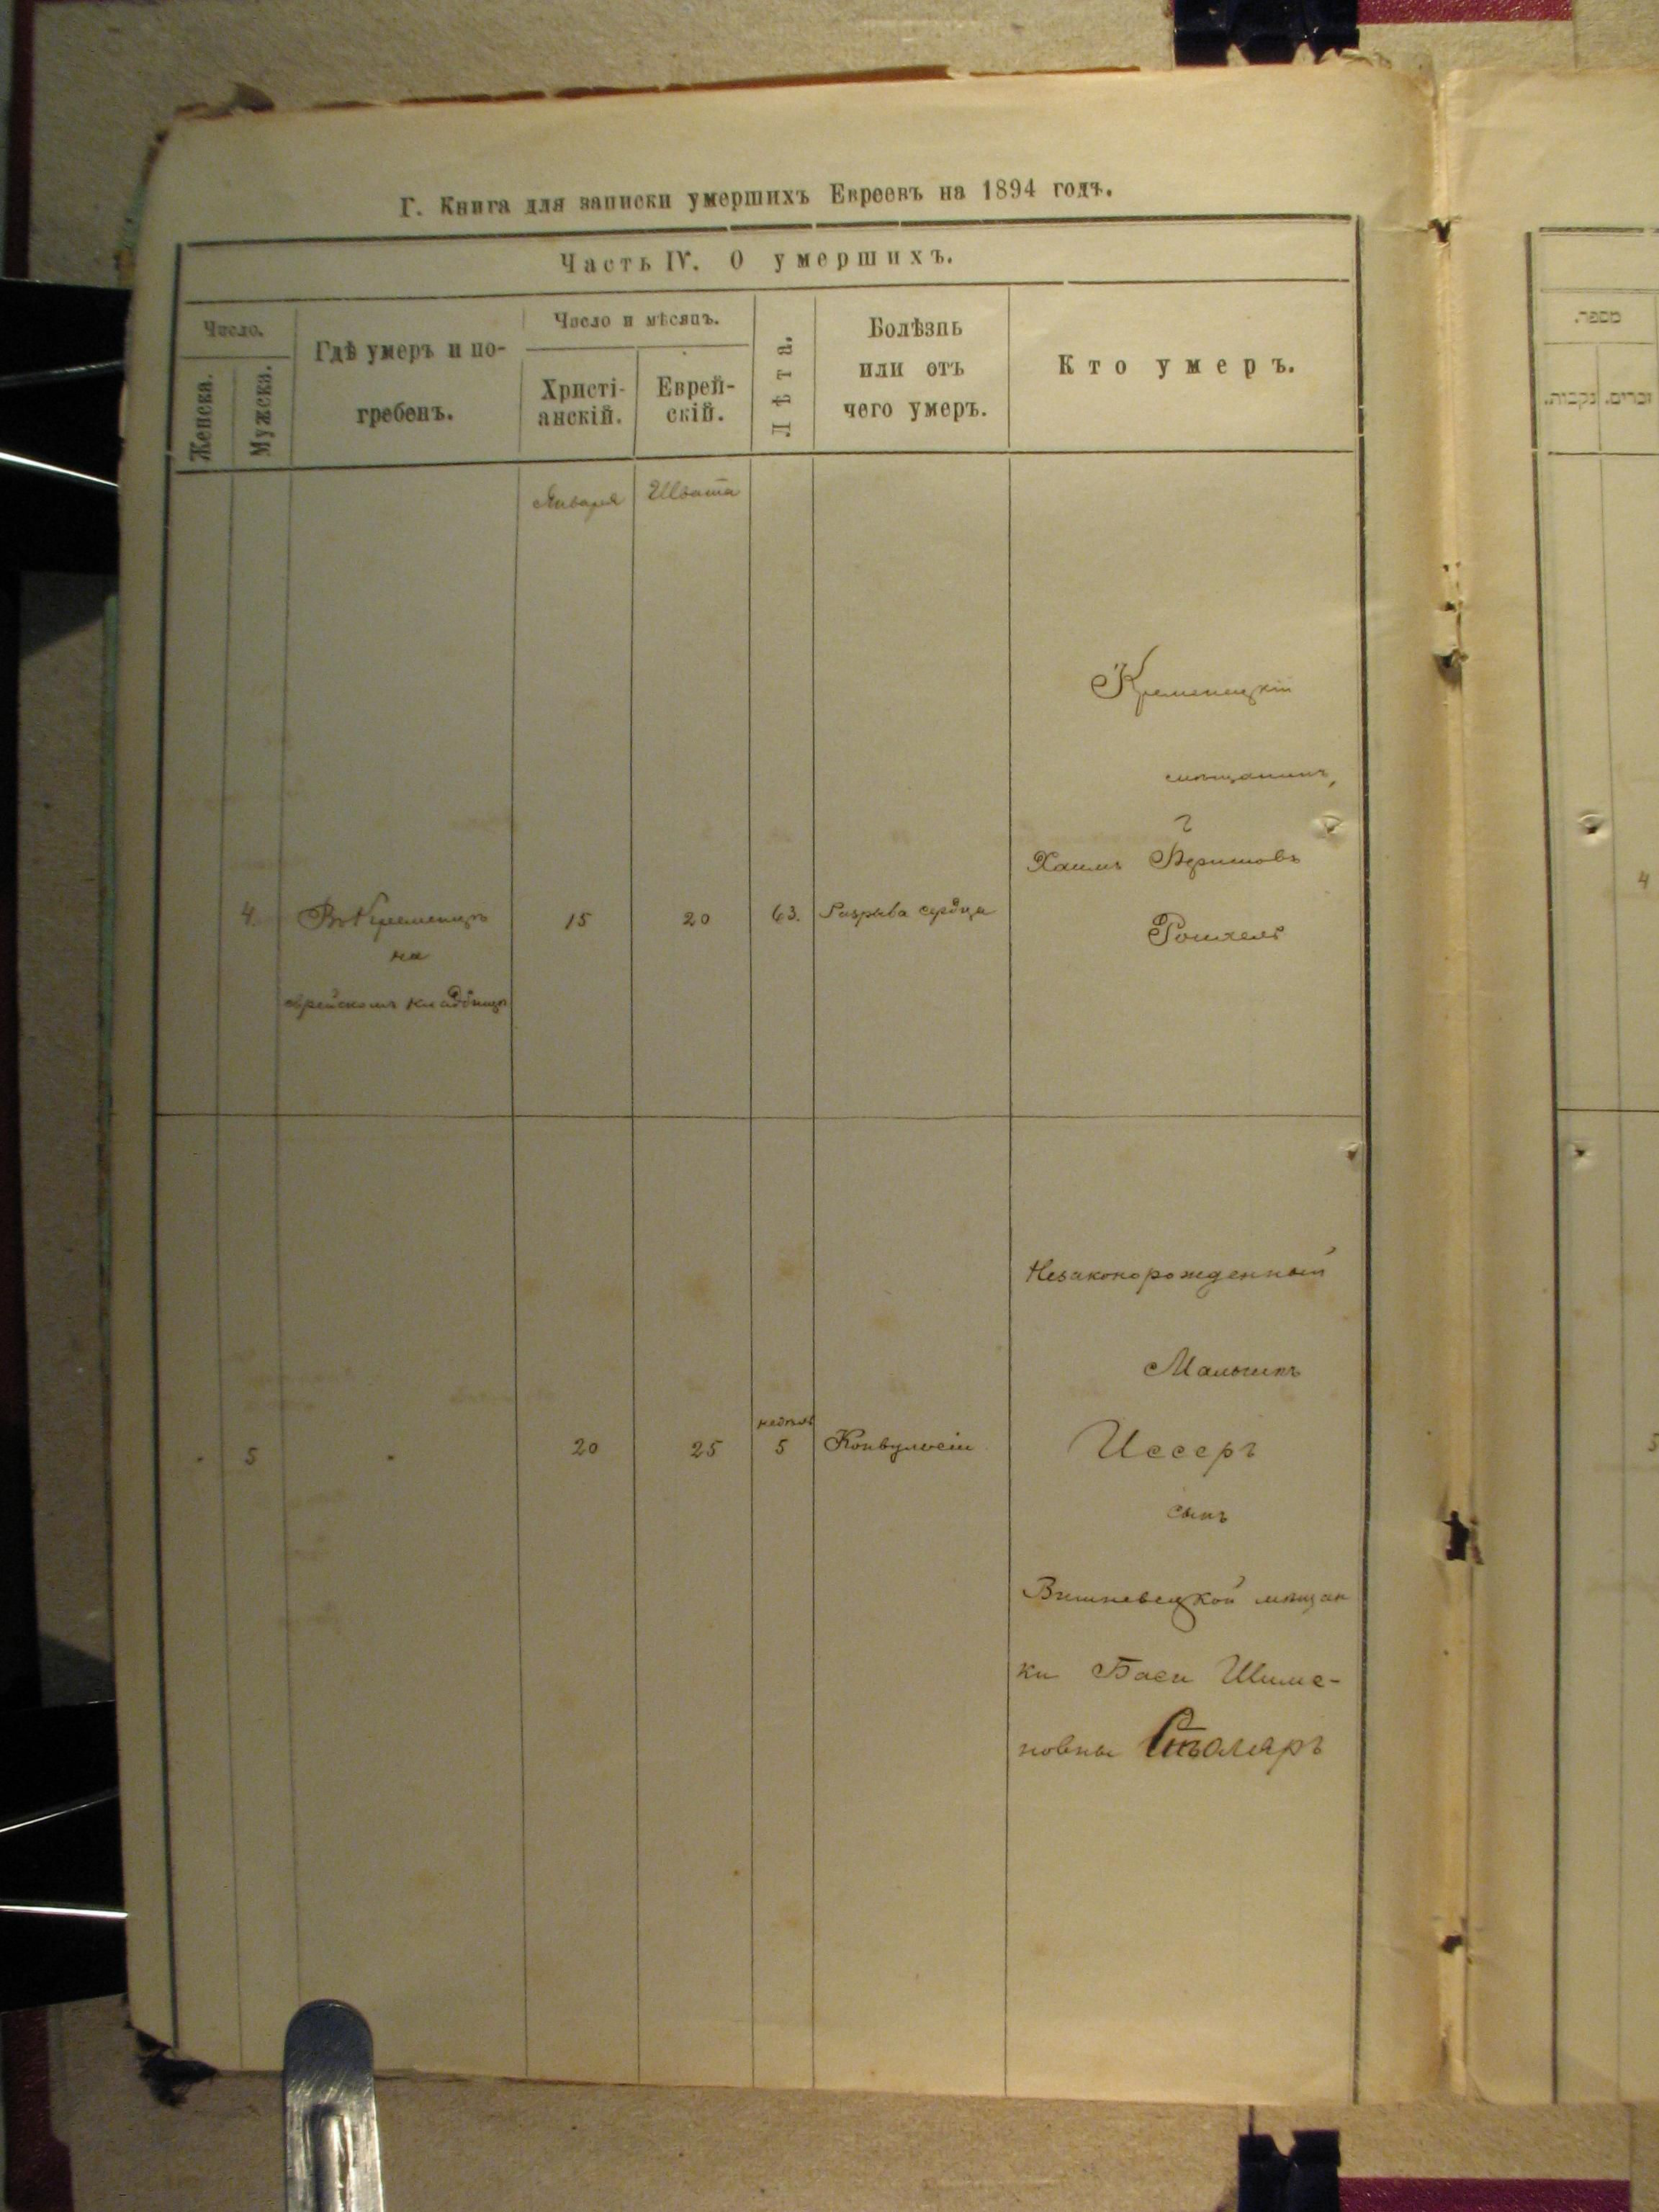 Г. Книга для записки умершихъ Евреевъ на 1894 годъ.
Часть IV. О умершихъ.
Число.
Женска.
Мужска.
Гдѣ умеръ и по-
гребенъ.
Число и мѣсяцъ.
Христі-
анскій.
Еврей-
скій.
Лѣта.
Болѣзнь
или отъ
чего умеръ.
Кто умеръ.
Января
Швата
4.
Въ Кременцѣ
на
еврейскомъ кладбищѣ
15
20
63.
Разрыва сердца
Кременецкій
мѣщанинъ,
Хаимъ
5
20
25
недѣль
5
Конвульсіи
Незаконорожденный
Мальчикъ
Иссеръ
сынъ
Вишневецкой мѣщан
ки Баси Шиме-
новны Столяръ
מספר.
נקבות.
זכרים.
4
5